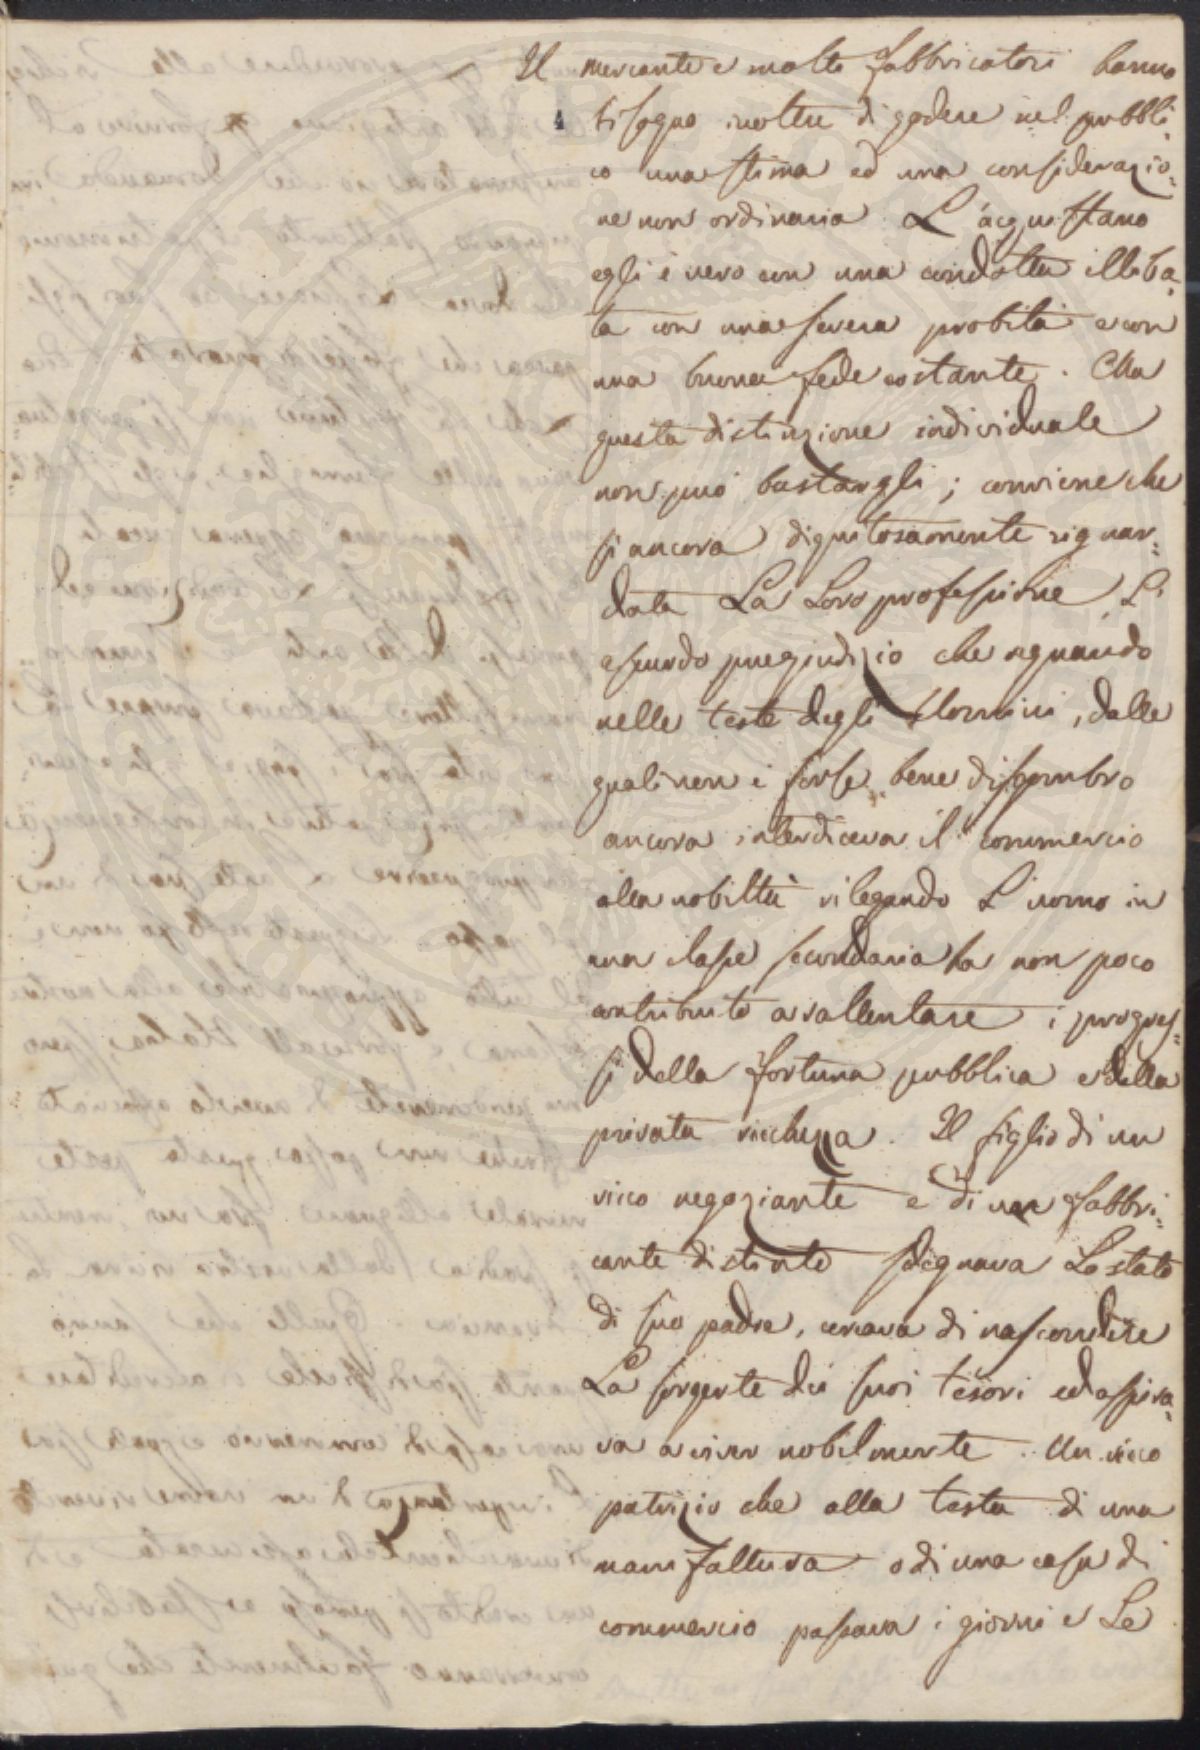 Il mercante e molti fabbricatori hanno
bisogno inoltre di godere nel pubbli=
co una stima ed una considerazio=
ne non ordinaria. L'acquistano
egli è vero con una condotta illiba=
ta con una severa probità e con
una buona fede costante. Ma
questa distinzione individuale
non può bastargli; conviene che
si ancora dignitosamente riguar=
data La Loro professione, L'
assurdo pregiudizio che regnando
nelle teste degli Uomini, dalle
quali non è forse bene disgombro
ancora interdiceva il commercio
alla nobiltà rilegando L'uomo in
una classe secondaria ha non poco
contribuito a rallentare i progres=
si della fortuna pubblica e della
privata ricchezza. Il figlio di un
ricco negoziante e di un fabbri=
cante distinto sdegnava Lo stato
di suo padre, cercava di nascondere
La sorgente dei suoi tesori ed aspira=
va a viver nobilmente. Un ricco
patrizio che alla testa di una
manifattura o di una casa di
commercio passava i giorni e Le